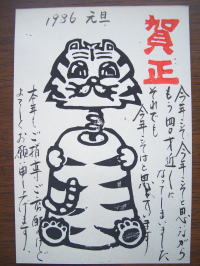 1986 元旦
賀正
今年こそ、今年こそと思いながら
もう四〇才近くに
なってしまいました
それでも
今年こそはと思います
本年も、ご指導、ご
よろしくお願い申し上げます。